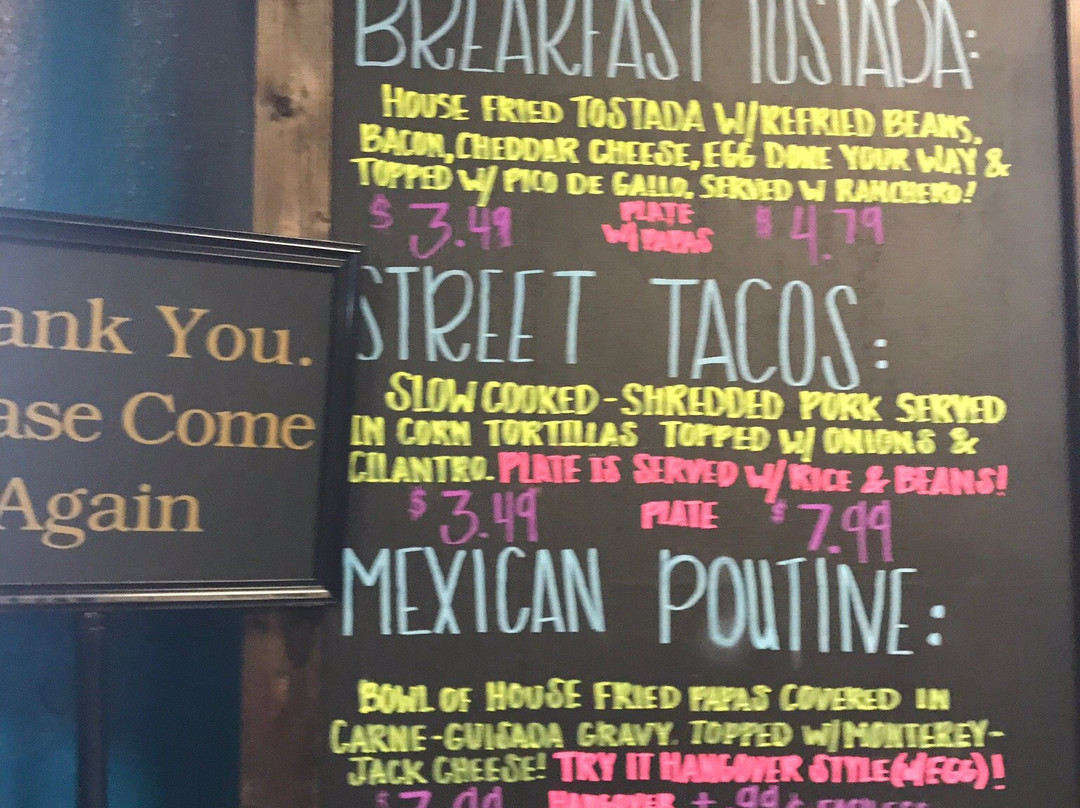 BREAKFAST TOSTADA:
HOUSE FRIED TOSTADA W/REFRIED BEANS,
BACON, CHEDDAR CHEESE, EGG DONE YOUR WAY &
TOPPED W/ PICO DE GALLO. SERVED W RANCHERO!
$3.49 PLATE W/ PAPAS $4.79
STREET TACOS:
SLOW COOKED-SHREDDED PORK SERVED
IN CORN TORTILLAS TOPPED W/ ONIONS &
CILANTRO. PLATE IS SERVED W/RICE & BEANS!
$3.49 PLATE $7.99
MEXICAN POUTINE:
BOWL OF HOUSE FRIED PAPAS COVERED IN
CARNE-GUISADA GRAVY. TOPPED W/MONTEREY-
JACK CHEESE! TRY IT HANGOVER STYLE(W/EGG)!
$7.99 HANGOVER + .99
ank You.
ase Come
Again